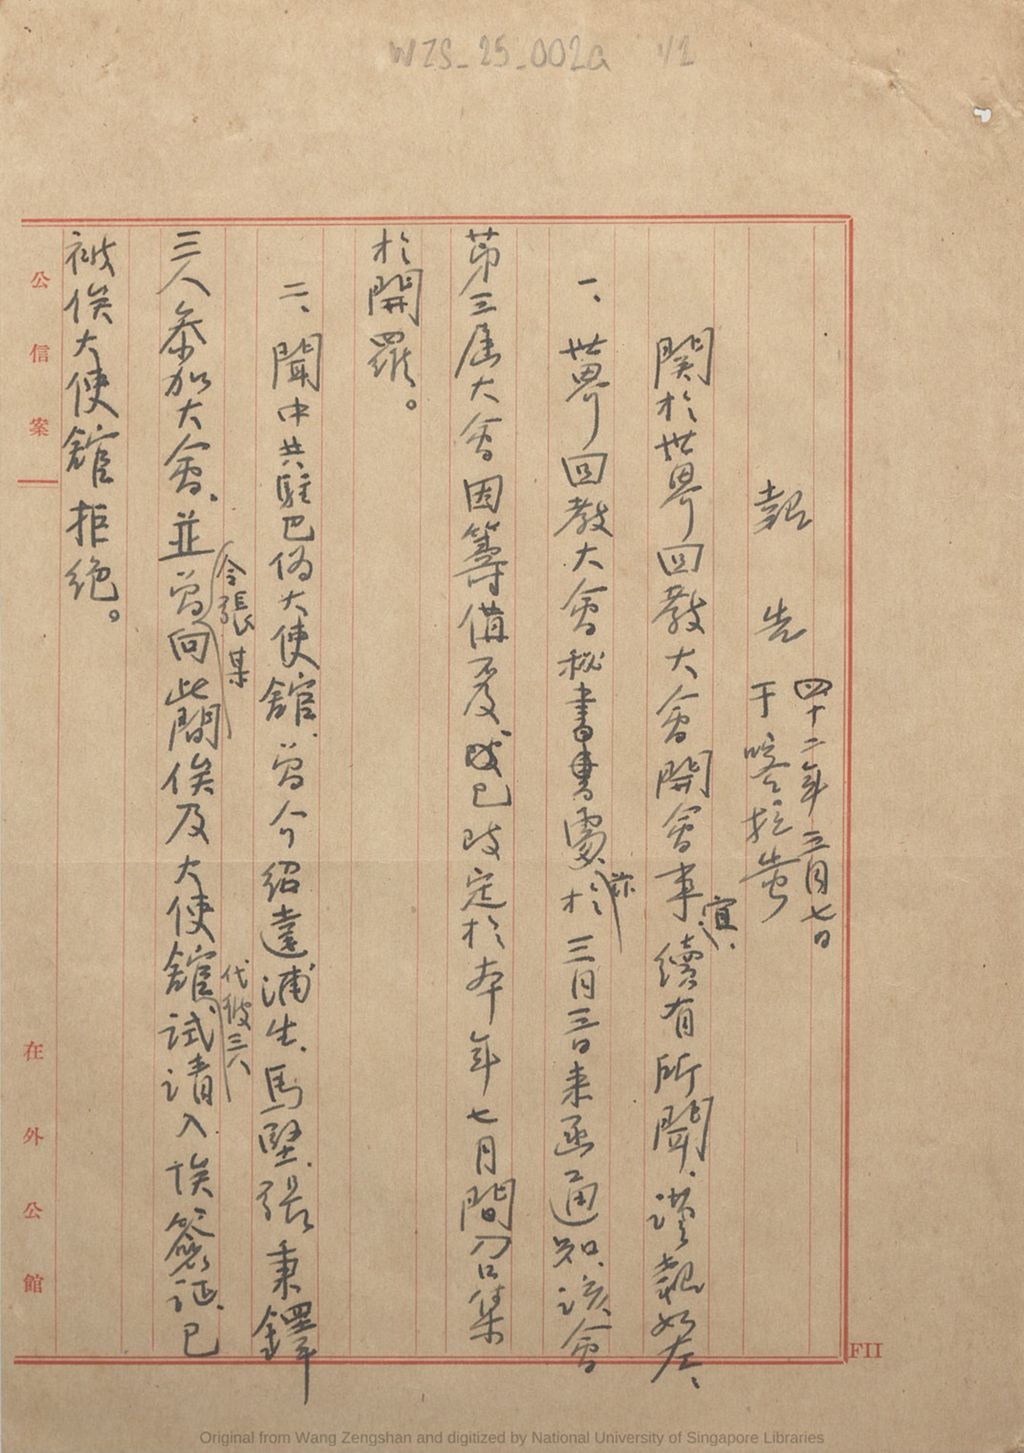 WZS_25_002a 1/2
報告 四十二年三月七日
于喀拉蚩
關於世界回教大會開會事宜、續有所聞、謹報如左、
一、世界回教大會秘書書處、茲於三月三日來函通知、該會
第三屆大會因籌備不及改已改定於本年七月間召集
於開羅。
二、聞中共駐巴偽大使館、曾介紹達浦生、馬堅、張秉鐸
三人參加大會、並曾令張某向此間俟及大使館、代彼三人試請入埃簽証、已
被俟大使館拒絕。
公信案
在外公館
FII
Original from Wang Zengshan and digitized by National University of Singapore Libraries